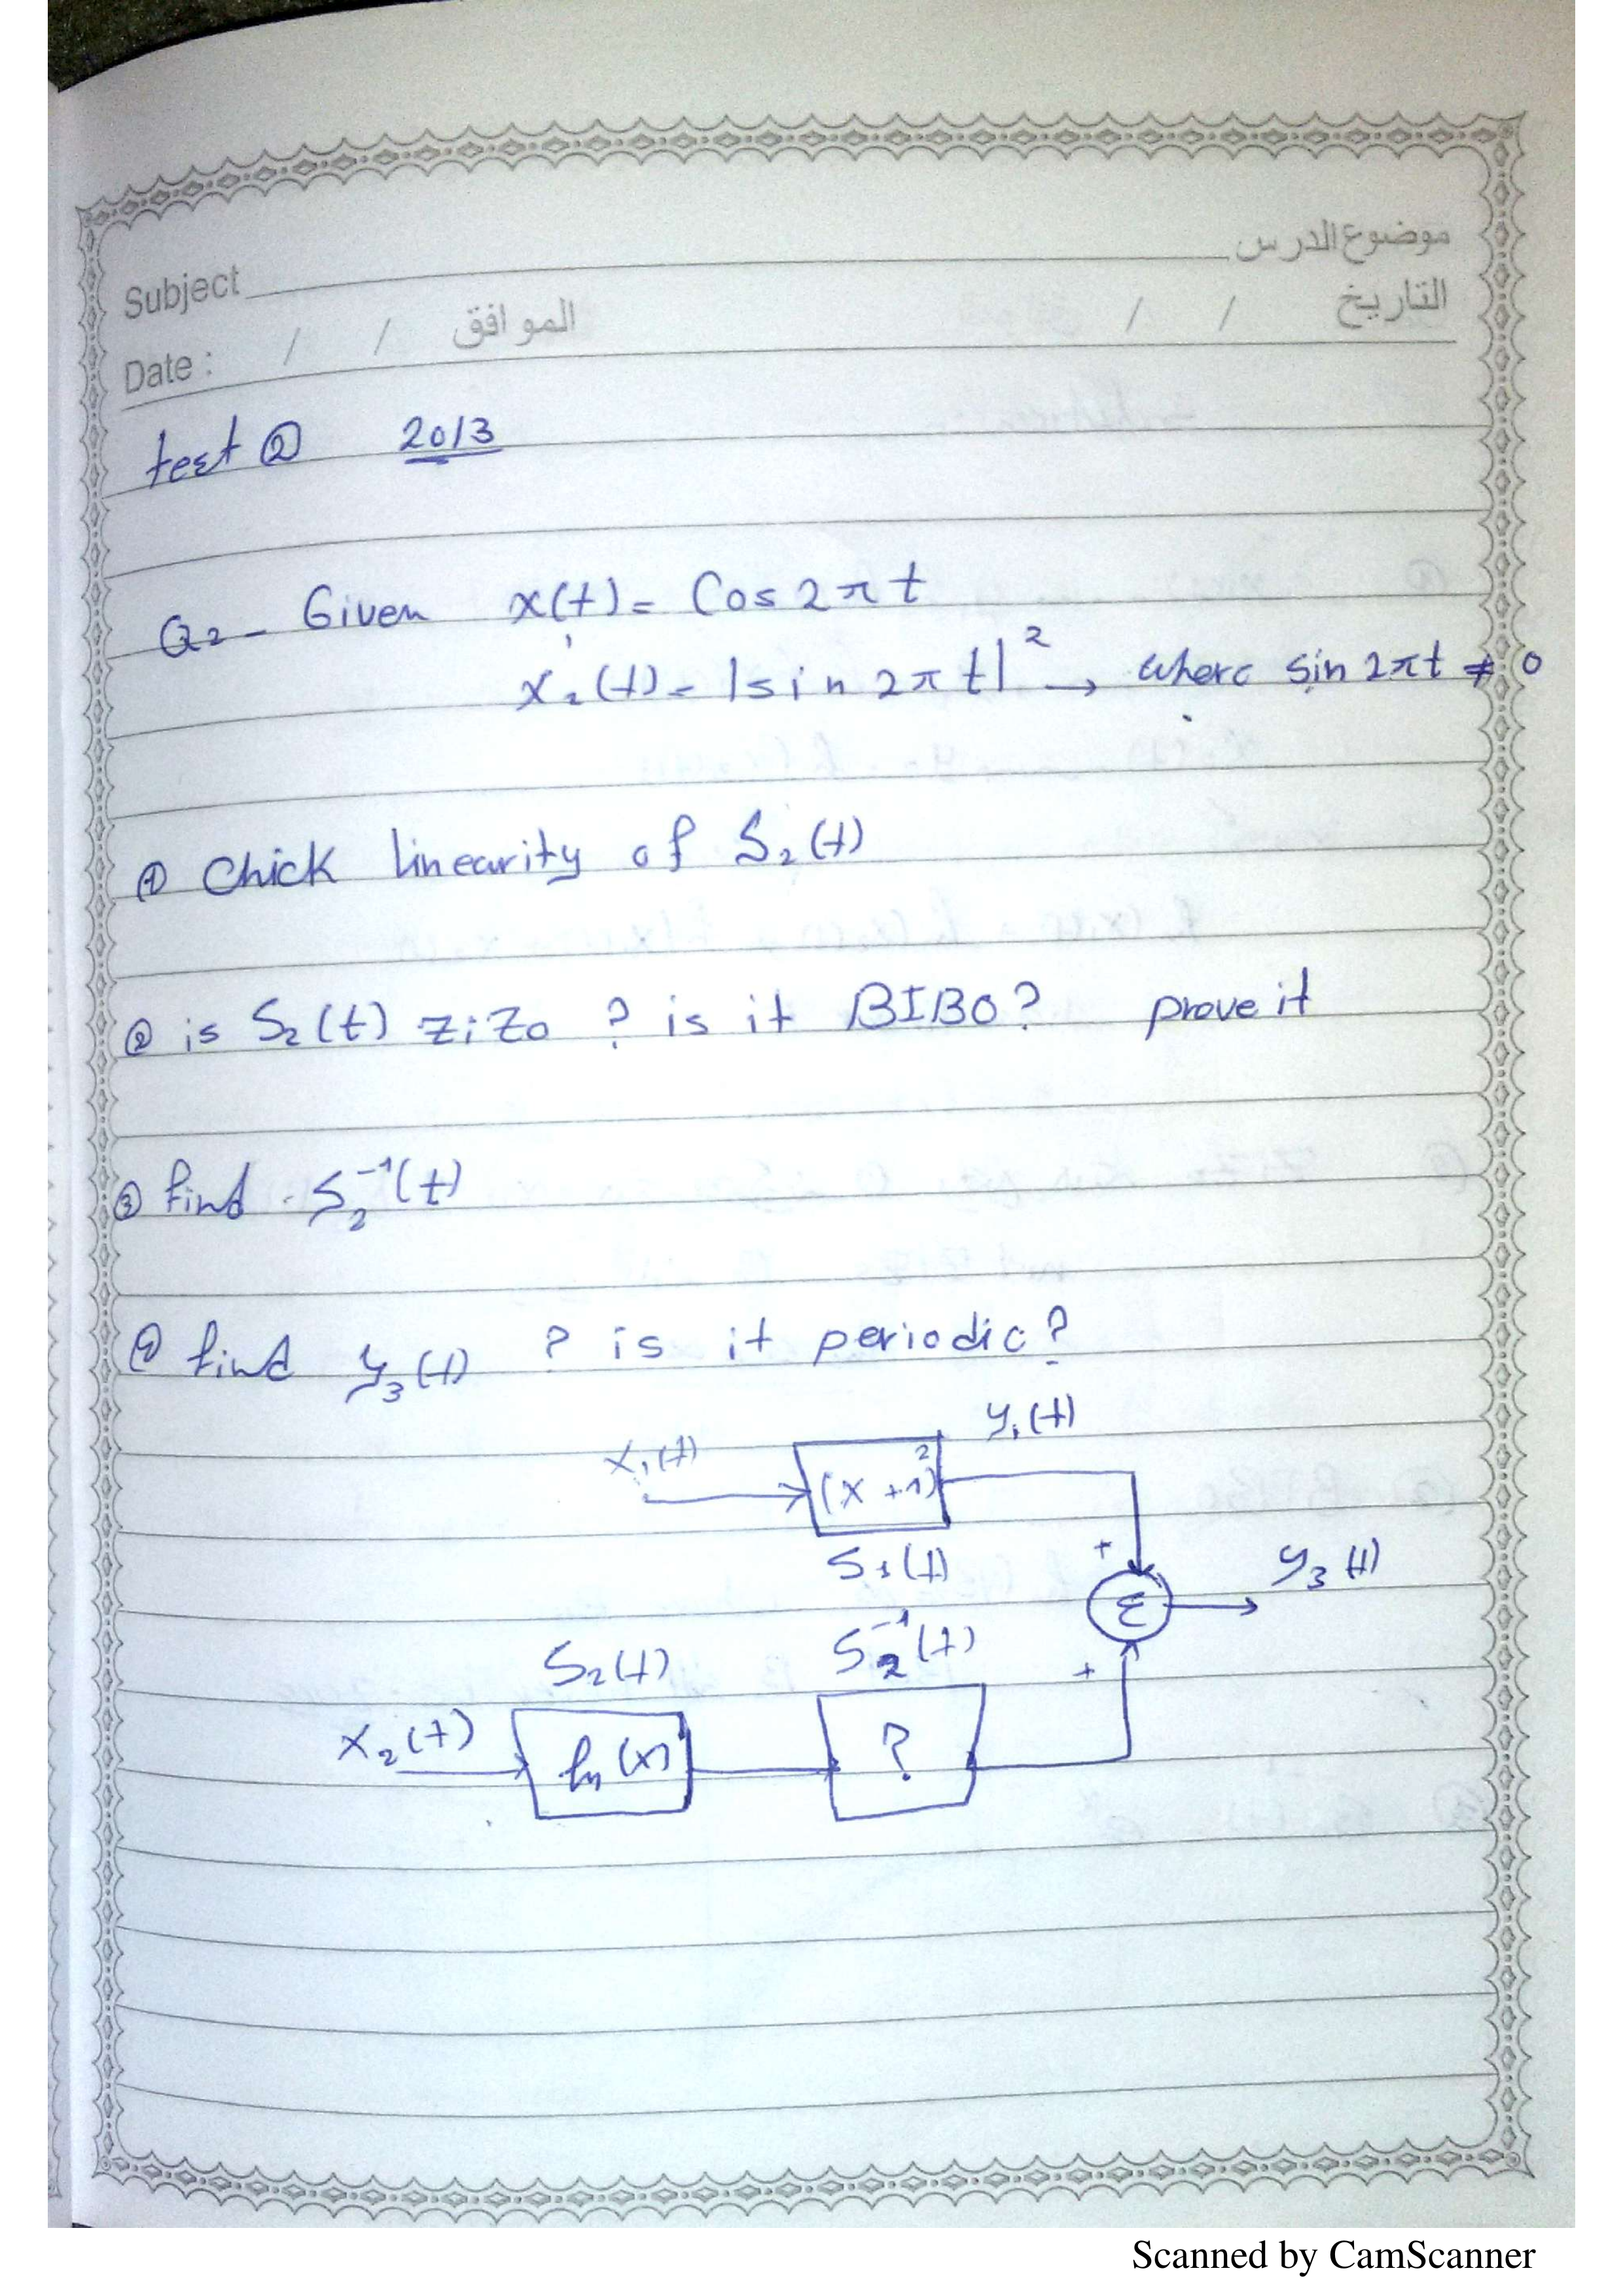 موضوع الدرس
Subject
التاريخ / / الموافق / /
Date :
test ② 2013
Q2 - Given x(t) = Cos 2πt
x₂(t) = |sin 2πt|² → where sin 2πt ≠ 0
① Chick linearity of S₂(t)
② is S₂(t) ZiZo ? is it BIBO? prove it
③ find S₂⁻¹(t)
④ find y₃(t) ? is it periodic?
x₁(t) (x+1)² y₁(t)
S₁(t) + y₃(t)
Σ
S₂(t) S₂⁻¹(t) +
x₂(t) ln(x) ?
Scanned by CamScanner